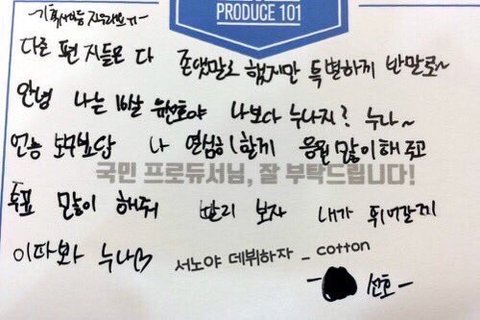 PRODUCE 101
다른 편지들은 다 존댓말로 했지만 특별하게 반말로~
안녕 나는 16살 유선호야 나보다 누나지? 누나~
나 열심히 할게 응원 많이 해 주고
국민 프로듀서님, 잘 부탁드립니다!
투표 많이 해줘 빨리 보자 내가 뛰어갈게
이따봐 누나♡ 서노야 데뷔하자 _ cotton
- 선호 -